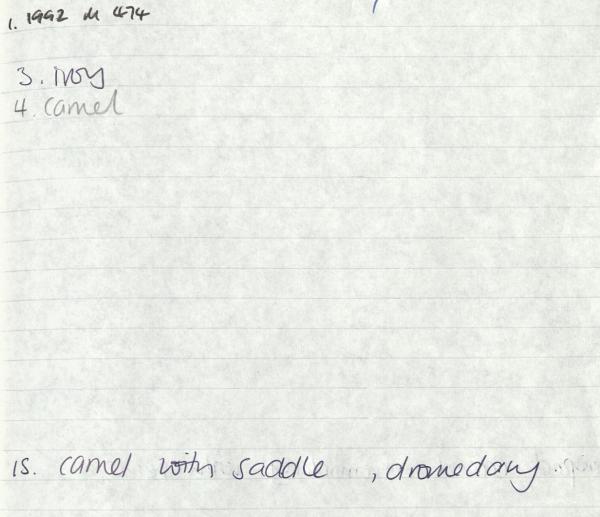 1. 1992 M 474
3. ivory
4. camel
15. camel with saddle , dromedary